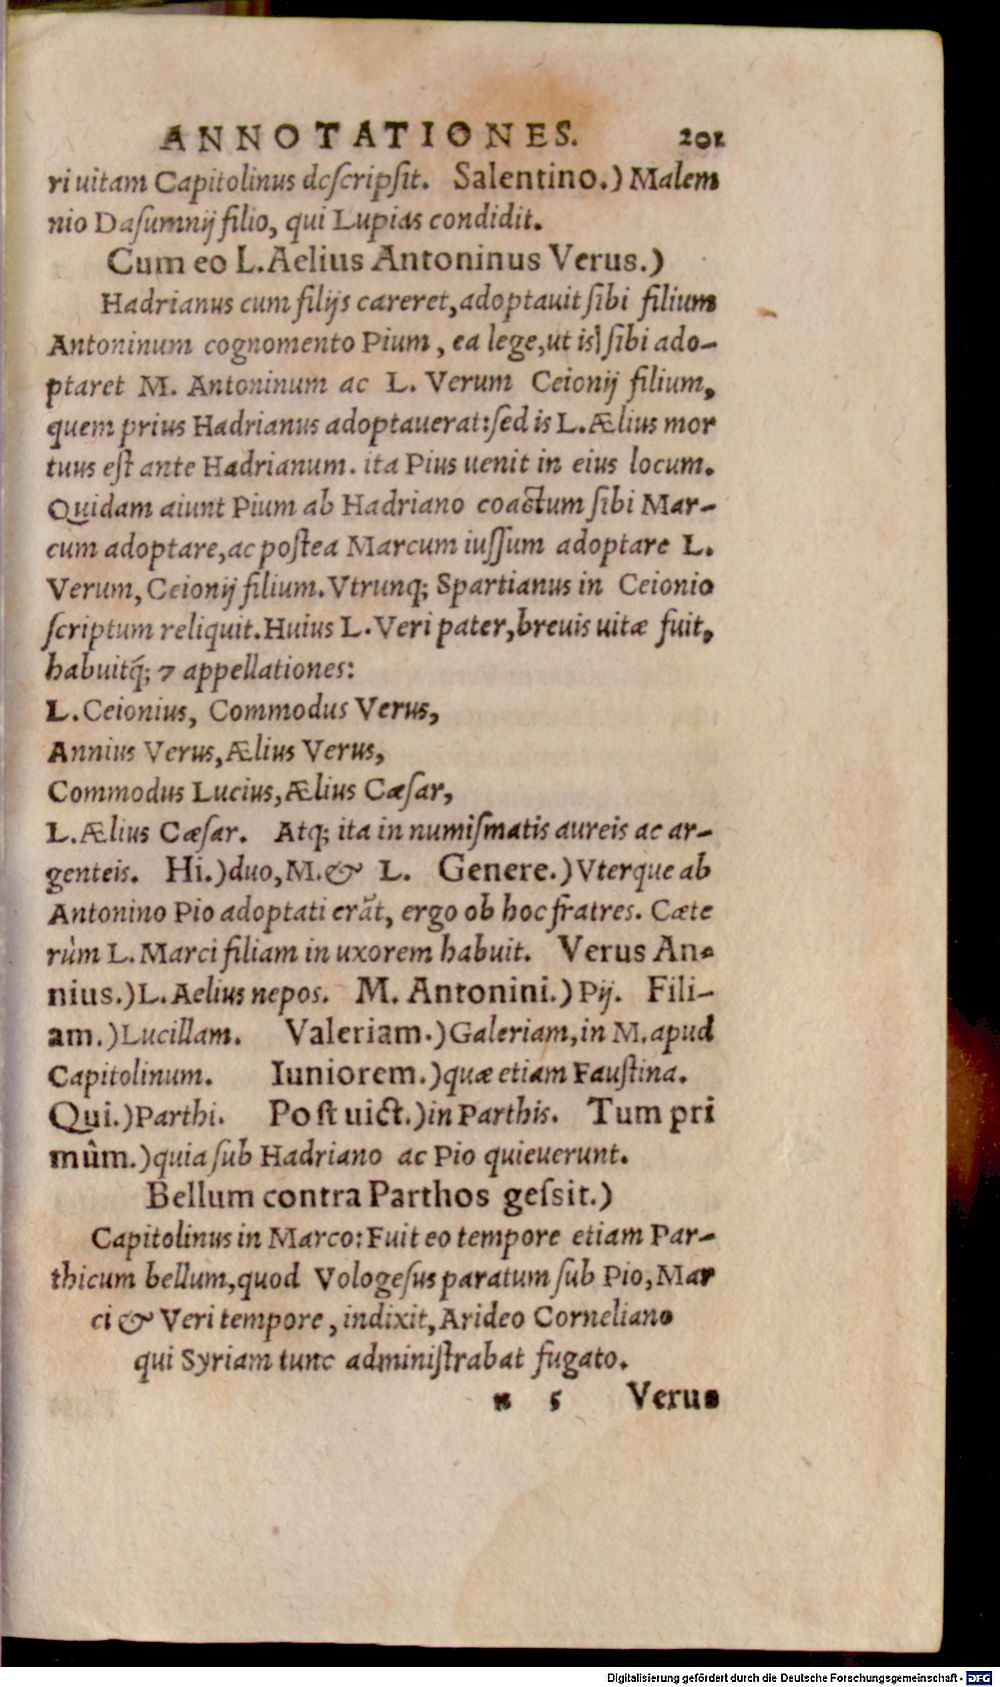 ANNOTATIONES. 201
ri uitam Capitolinus dcſcripſit. Salentino.) Malem
nio Daſumnij filio, qui Lupias condidit.
Cum eo L. Aelius Antoninus Verus.)
Hadrianus cum filijs careret, adoptauit ſibi filium
Antoninum cognomento Pium, ea lege, ut is ſibi ado-
ptaret M. Antoninum ac L. Verum Ceionij filium,
quem prius Hadrianus adoptauerat: ſed is L. Ælius mor
tuus eſt ante Hadrianum. ita Pius uenit in eius locum.
Quidam aiunt Pium ab Hadriano coactum ſibi Mar-
cum adoptare, ac poſtea Marcum iuſſum adoptare L.
Verum, Ceionij filium. Vtrunq; Spartianus in Ceionio
ſcriptum reliquit. Huius L. Veri pater, breuis uitæ fuit,
habuitq́; 7 appellationes:
L. Ceionius, Commodus Verus,
Annius Verus, Ælius Verus,
Commodus Lucius, Ælius Cæſar,
L. Ælius Cæſar. Atq; ita in numiſmatis aureis ac ar-
genteis. Hi.) duo, M. & L. Genere.) Vterque ab
Antonino Pio adoptati erãt, ergo ob hoc fratres. Cæte
rùm L. Marci filiam in uxorem habuit. Verus An-
nius.) L. Aelius nepos. M. Antonini.) Pij. Fili-
am.) Lucillam. Valeriam.) Galeriam, in M. apud
Capitolinum. Iuniorem.) quæ etiam Fauſtina.
Qui.) Parthi. Poſt uict.) in Parthis. Tum pri
mûm.) quia ſub Hadriano ac Pio quieuerunt.
Bellum contra Parthos geſsit.)
Capitolinus in Marco: Fuit eo tempore etiam Par-
thicum bellum, quod Vologeſus paratum ſub Pio, Mar
ci & Veri tempore, indixit, Arideo Corneliano
qui Syriam tunc adminiſtrabat fugato.
n 5 Verus
Digitalisierung gefördert durch die Deutsche Forschungsgemeinschaft - DFG